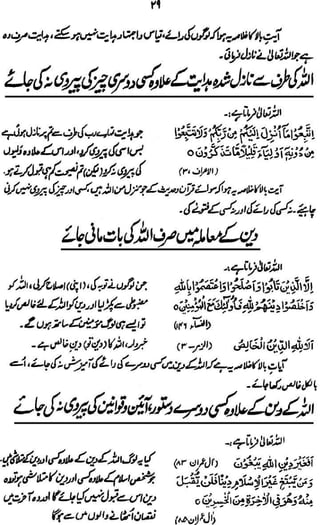 ۲۹
آیت بالا کا خلاصہ یہ ہوا کہ لوگوں کی رائے، قیاس و اجتہاد ہدایت نہیں ہو سکتے، ہدایت صرف وہ
ہے جو اللہ تعالیٰ نے نازل فرمائی۔
اللہ کی طرف سے نازل شدہ ہدایت کے علاوہ کسی دوسری چیز کی پیروی نہ کی جائے
اللہ تعالیٰ فرماتا ہے:
اِتَّبِعُوْا مَآ اُنْزِلَ اِلَيْكُمْ مِّنْ رَّبِّكُمْ وَلَا تَتَّبِعُوْا
مِنْ دُوْنِهٖٓ اَوْلِيَآءَ قَلِيْلًا مَّا تَذَكَّرُوْنَ
(الاعراف ۳)
جو ہدایت تمہارے رب کی طرف سے تم پر نازل ہوئی ہے
بس اسی کی پیروی کرو، اور اس کے علاوہ ولیوں
کی پیروی نہ کرو (لیکن) تم نصیحت کم ہی قبول کرتے ہو۔
آیت بالا کا خلاصہ یہ ہوا کہ سوائے قرآن و حدیث کے جو منزل من اللہ ہیں، کسی اور چیز کی پیروی نہیں کرنی
چاہیے۔ نہ کسی کی رائے کی اور نہ کسی کے فتوے کی۔
دین کے معاملہ میں صرف اللہ کی بات مانی جائے
اللہ تعالیٰ فرماتا ہے:
اِلَّا الَّذِيْنَ تَابُوْا وَاَصْلَحُوْا وَاعْتَصَمُوْا بِاللّٰهِ
وَاَخْلَصُوْا دِيْنَهُمْ لِلّٰهِ فَاُولٰٓئِكَ مَعَ الْمُؤْمِنِيْنَ
(النساء ۱۴۶)
جن لوگوں نے توبہ کی، (اپنی) اصلاح کر لی، اللہ کو
مضبوطی سے پکڑ لیا اور دین کو اللہ کے لئے خالص کر لیا
تو ایسے ہی لوگ مؤمنین کے ساتھ ہوں گے۔
اَلَا لِلّٰهِ الدِّيْنُ الْخَالِصُ (الزمر ۳)
خبردار، اللہ کا (دین تو) خالص دین ہے۔
آیات بالا کا خلاصہ یہ ہے کہ اللہ کے دین میں کسی دوسرے کی رائے کی آمیزش نہ کی جائے، اُسے
بالکل خالص رکھا جائے۔
اللہ کے دین کے علاوہ کسی دوسرے دستور، آئین و قوانین کی پیروی نہ کی جائے
اللہ تعالیٰ فرماتا ہے:
اَفَغَيْرَ دِيْنِ اللّٰهِ يَبْغُوْنَ (آل عمران ۸۳)
وَمَنْ يَّبْتَغِ غَيْرَ الْاِسْلَامِ دِيْنًا فَلَنْ يُّقْبَلَ
مِنْهُ وَهُوَ فِى الْاٰخِرَةِ مِنَ الْخٰسِرِيْنَ
(آل عمران ۸۵)
کیا یہ لوگ اللہ کے دین کے علاوہ کسی اور دین کے متلاشی ہیں
جو شخص اسلام کے علاوہ کسی اور دین کا متلاشی ہو تو وہ
دین اس سے قبول نہیں کیا جائے گا اور وہ آخرت میں
نقصان اُٹھانے والوں میں سے ہو گا